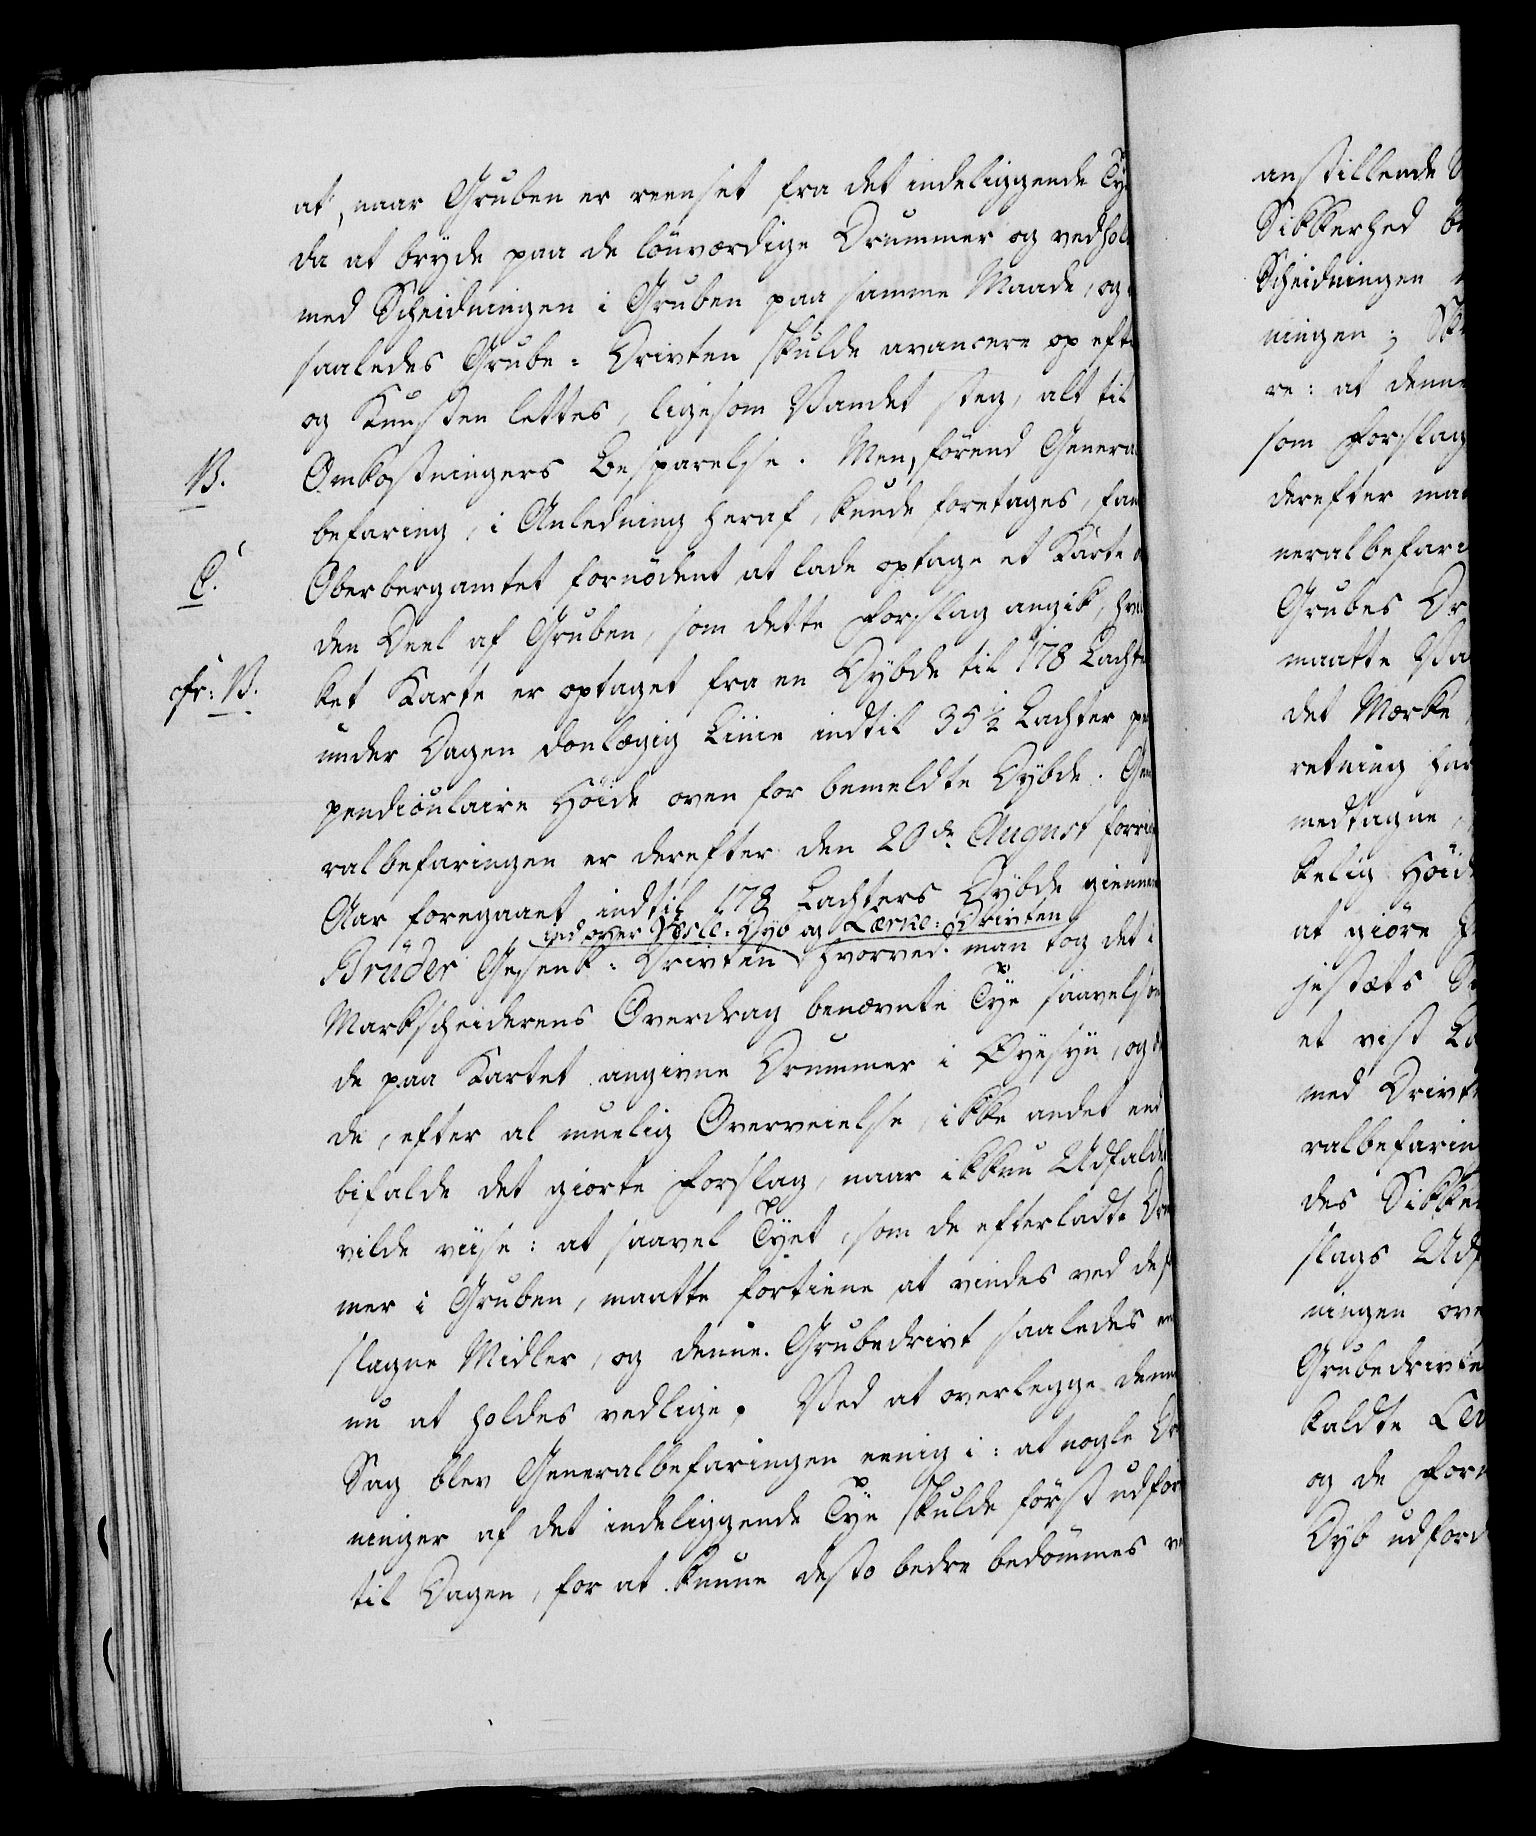 at, naar Gruben er reenset fra det indeliggende Tye
da at bryde paa de lönværdige Drummer og vedhol
med Scheidningen i Gruben paa samme Maade, og
saaledes Grube-Drivten skulde avancere op eft
og Kunsten lettes, ligesom Vandet steg, alt til
B. Omkostningers Besparelse. Men, förend Genera
befaring, i Anledning heraf, kunde foretages, fan
C. Oberbergamtet fornödent at lade optage et Karte
den Deel af Gruben, som dette Forslag angik, hvi
cfr: B. ket Karte er optaget fra en Dybde til 178 Lacht
under Dagen donlægig Linie indtil 35 1/2 Lachter p
pendiculaire Höide oven for bemeldte Dybde. Gen
ralbefaringen er derefter den 20de August forri
Aar foregaaet indtil 178 Lachters Dybde giennem
ind over Vesle-Dyb og Lærke-Drivten
Brüder Gesenk-Drivten hvorved man tog det i
Markscheiderens Overdrag benævnte Tye saavelsom
de paa Kartet angivne Drummer i Øyesyn, og
de, efter al muelig Overveielse, ikke andet end
bifalde det giorte Forslag, naar ikkun Udfalde
vilde viise: at saavel Tyet, som de efterladte Dru
mer i Gruben, maatte fortiene at vindes ved de f
slagne Midler, og denne Grubedrivt saaledes en
nu at holdes vedlige. Ved at overlegge denne
Sag blev Generalbefaringen eenig i: at nogle Dr
ninger af det indeliggende Tye skulde först udför
til Dagen, for at kunne desto bedre bedömmes ve
anstillende
Sikkerhed be
Scheidningen
ningen; Sk
re: at denne
som Forslag
derefter maa
neralbefari
Grubes Dr
maatte Va
det Mærke
retning har
medtagne
kelig Höid
at giöre
jestæts
et vist La
med Drivt
ralbefarin
des Sikker
slags Udf
ningen ove
Grubedrivte
kaldte
og de For
Dyb udford